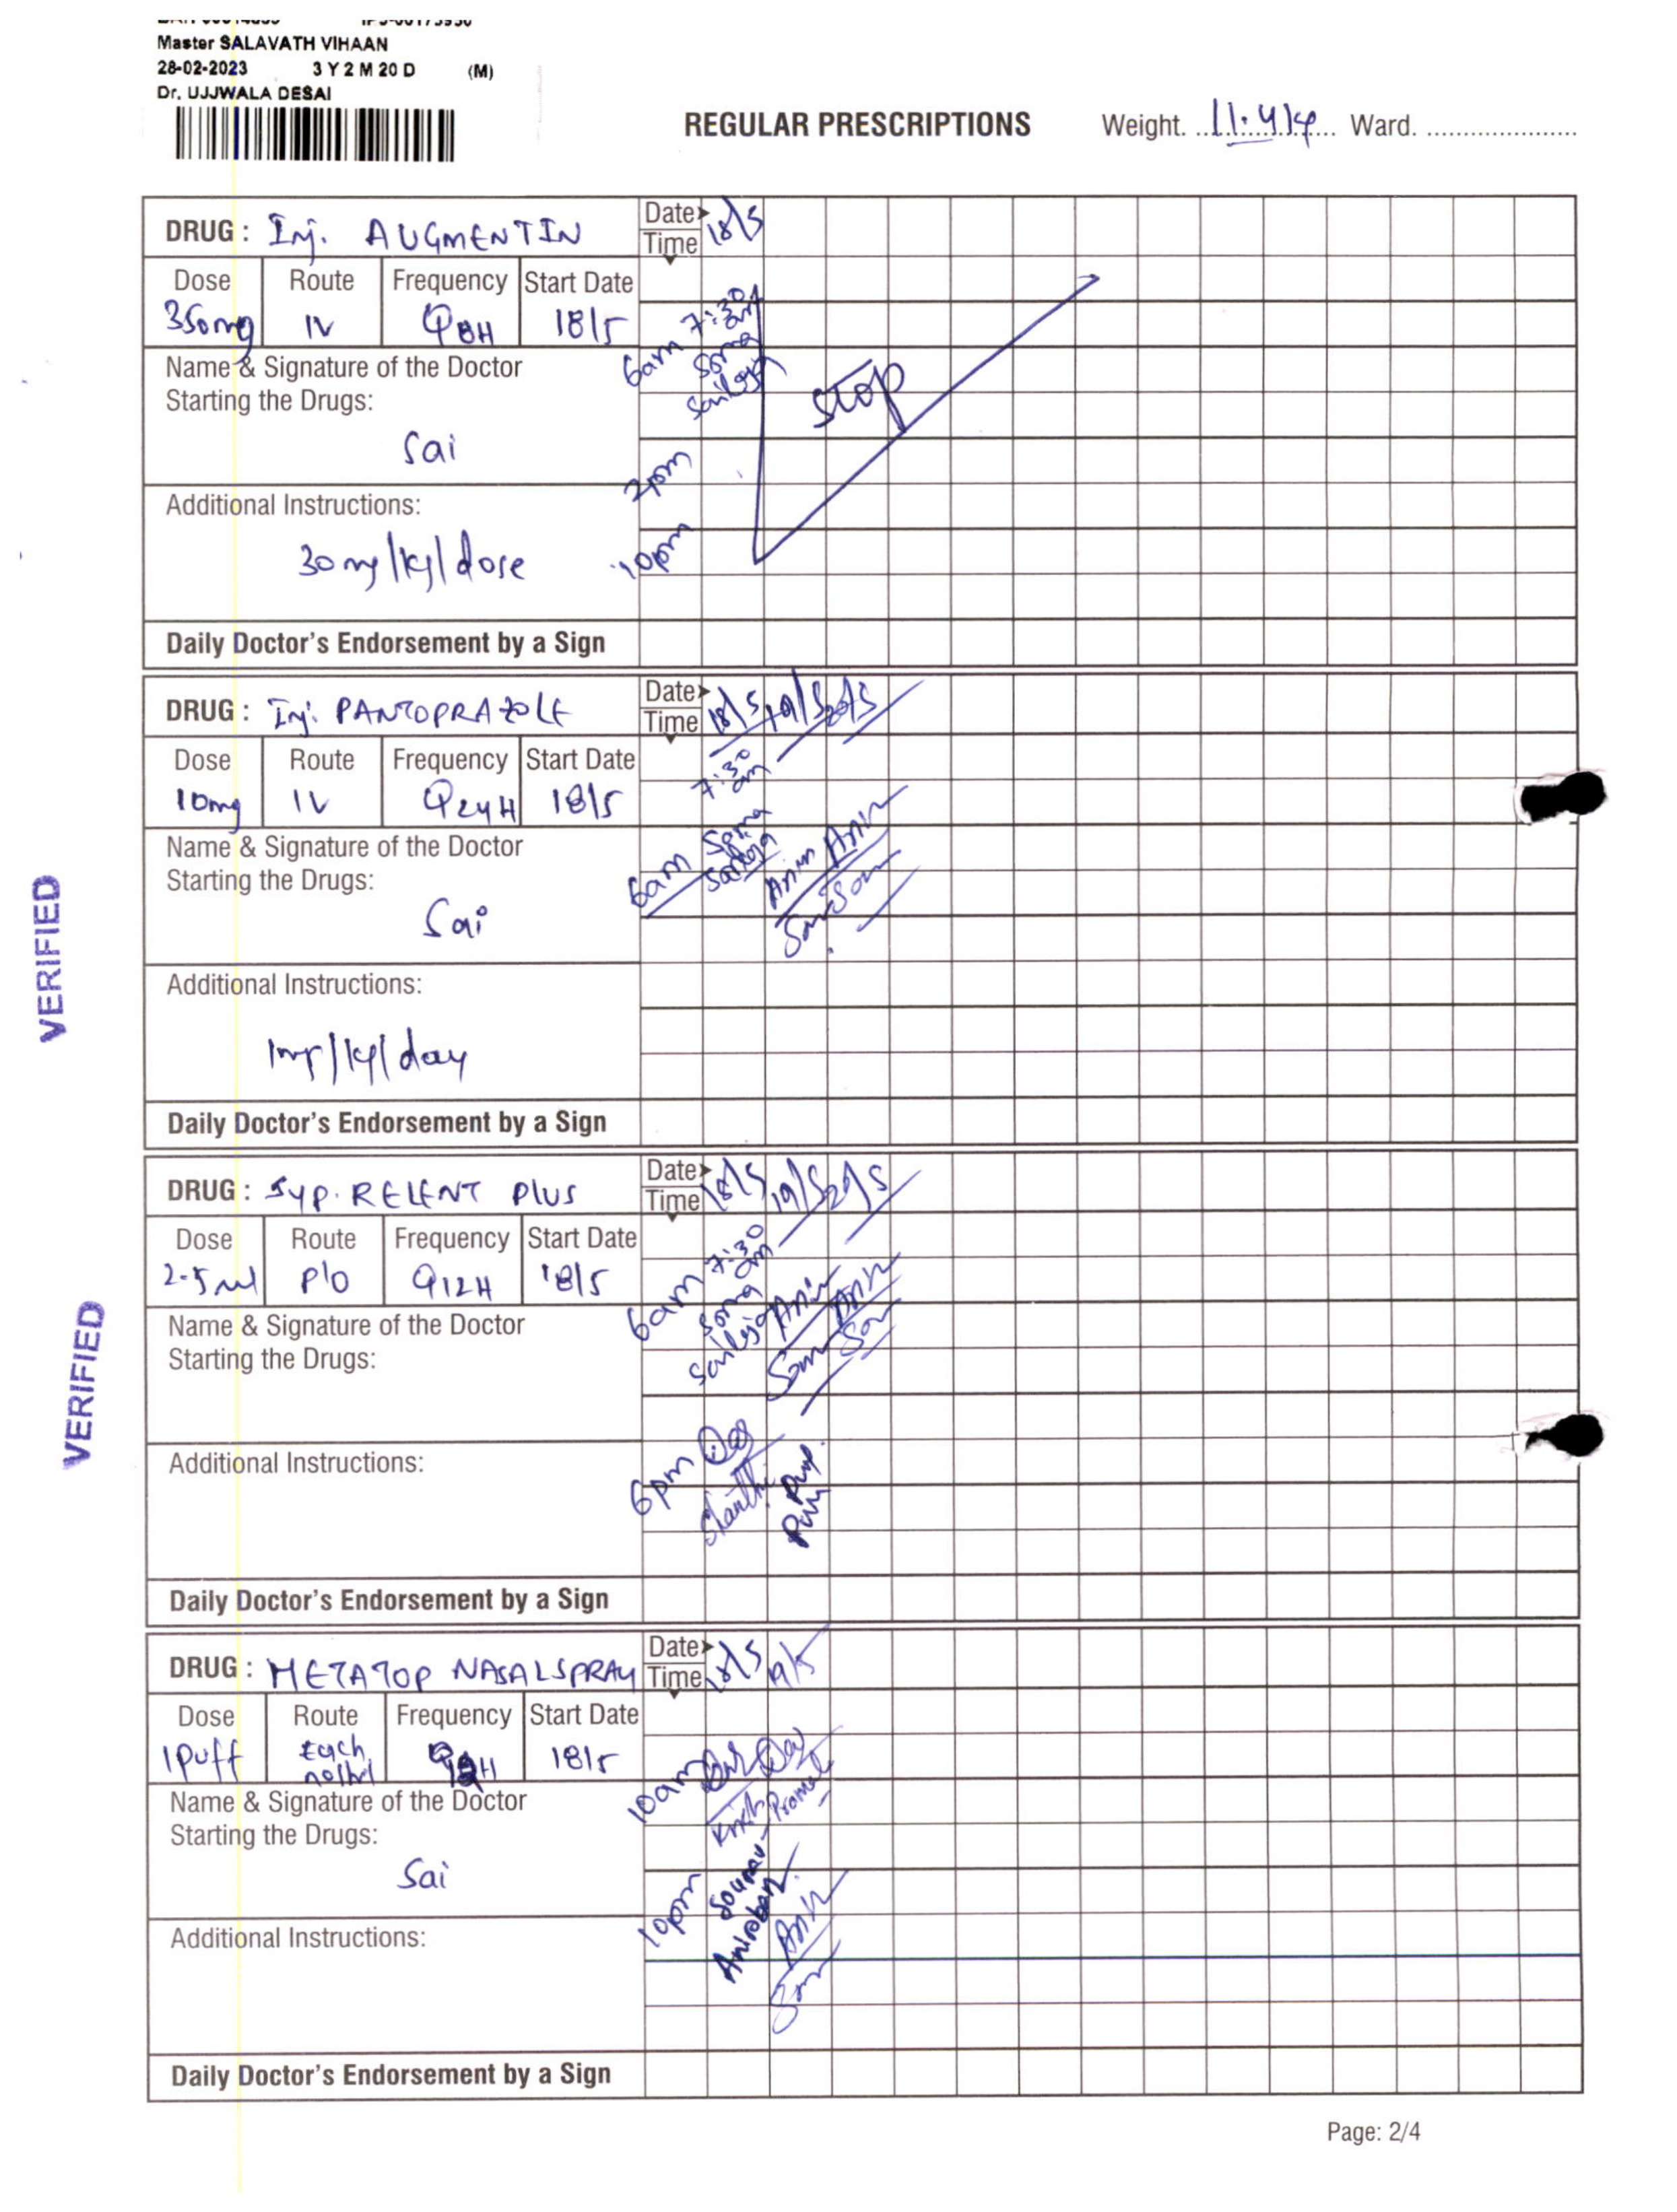 Master SALAVATH VIHAAN
28-02-2023 3 Y 2 M 20 D (M)
Dr. UJJWALA DESAI
REGULAR PRESCRIPTIONS Weight. 11.4kg Ward.
DRUG : Inj. AUGMENTIN Date Time 18/5
Dose Route Frequency Start Date
350mg IV Q8H 18/5
6am 7:30am
Name & Signature of the Doctor
Starting the Drugs:
Soma
Saileja
STOP
Sai
2pm
Additional Instructions:
30mg/kg/dose
10pm
Daily Doctor's Endorsement by a Sign
DRUG : Inj. PANTOPRAZOLE Date Time 18/5 19/5 20/5
Dose Route Frequency Start Date
10mg IV Q24H 18/5
7:30am
Name & Signature of the Doctor
Starting the Drugs:
6am Soma
Saileja
Sai
Additional Instructions:
1mg/kg/day
Daily Doctor's Endorsement by a Sign
VERIFIED
DRUG : Syp. RELENT PLUS Date Time 18/5 19/5 20/5
Dose Route Frequency Start Date
2.5ml P/O Q12H 18/5
6am 7:30am
Name & Signature of the Doctor
Starting the Drugs:
Soma
Saileja
6pm
Additional Instructions:
Shanthi
Daily Doctor's Endorsement by a Sign
VERIFIED
DRUG : METATOP NASALSPRAY Date Time 18/5 19/5
Dose Route Frequency Start Date
1 Puff Each nostril 18/5
10am
Name & Signature of the Doctor
Starting the Drugs:
Sai
10pm
Sourav
Anirban
Additional Instructions:
Daily Doctor's Endorsement by a Sign
Page: 2/4